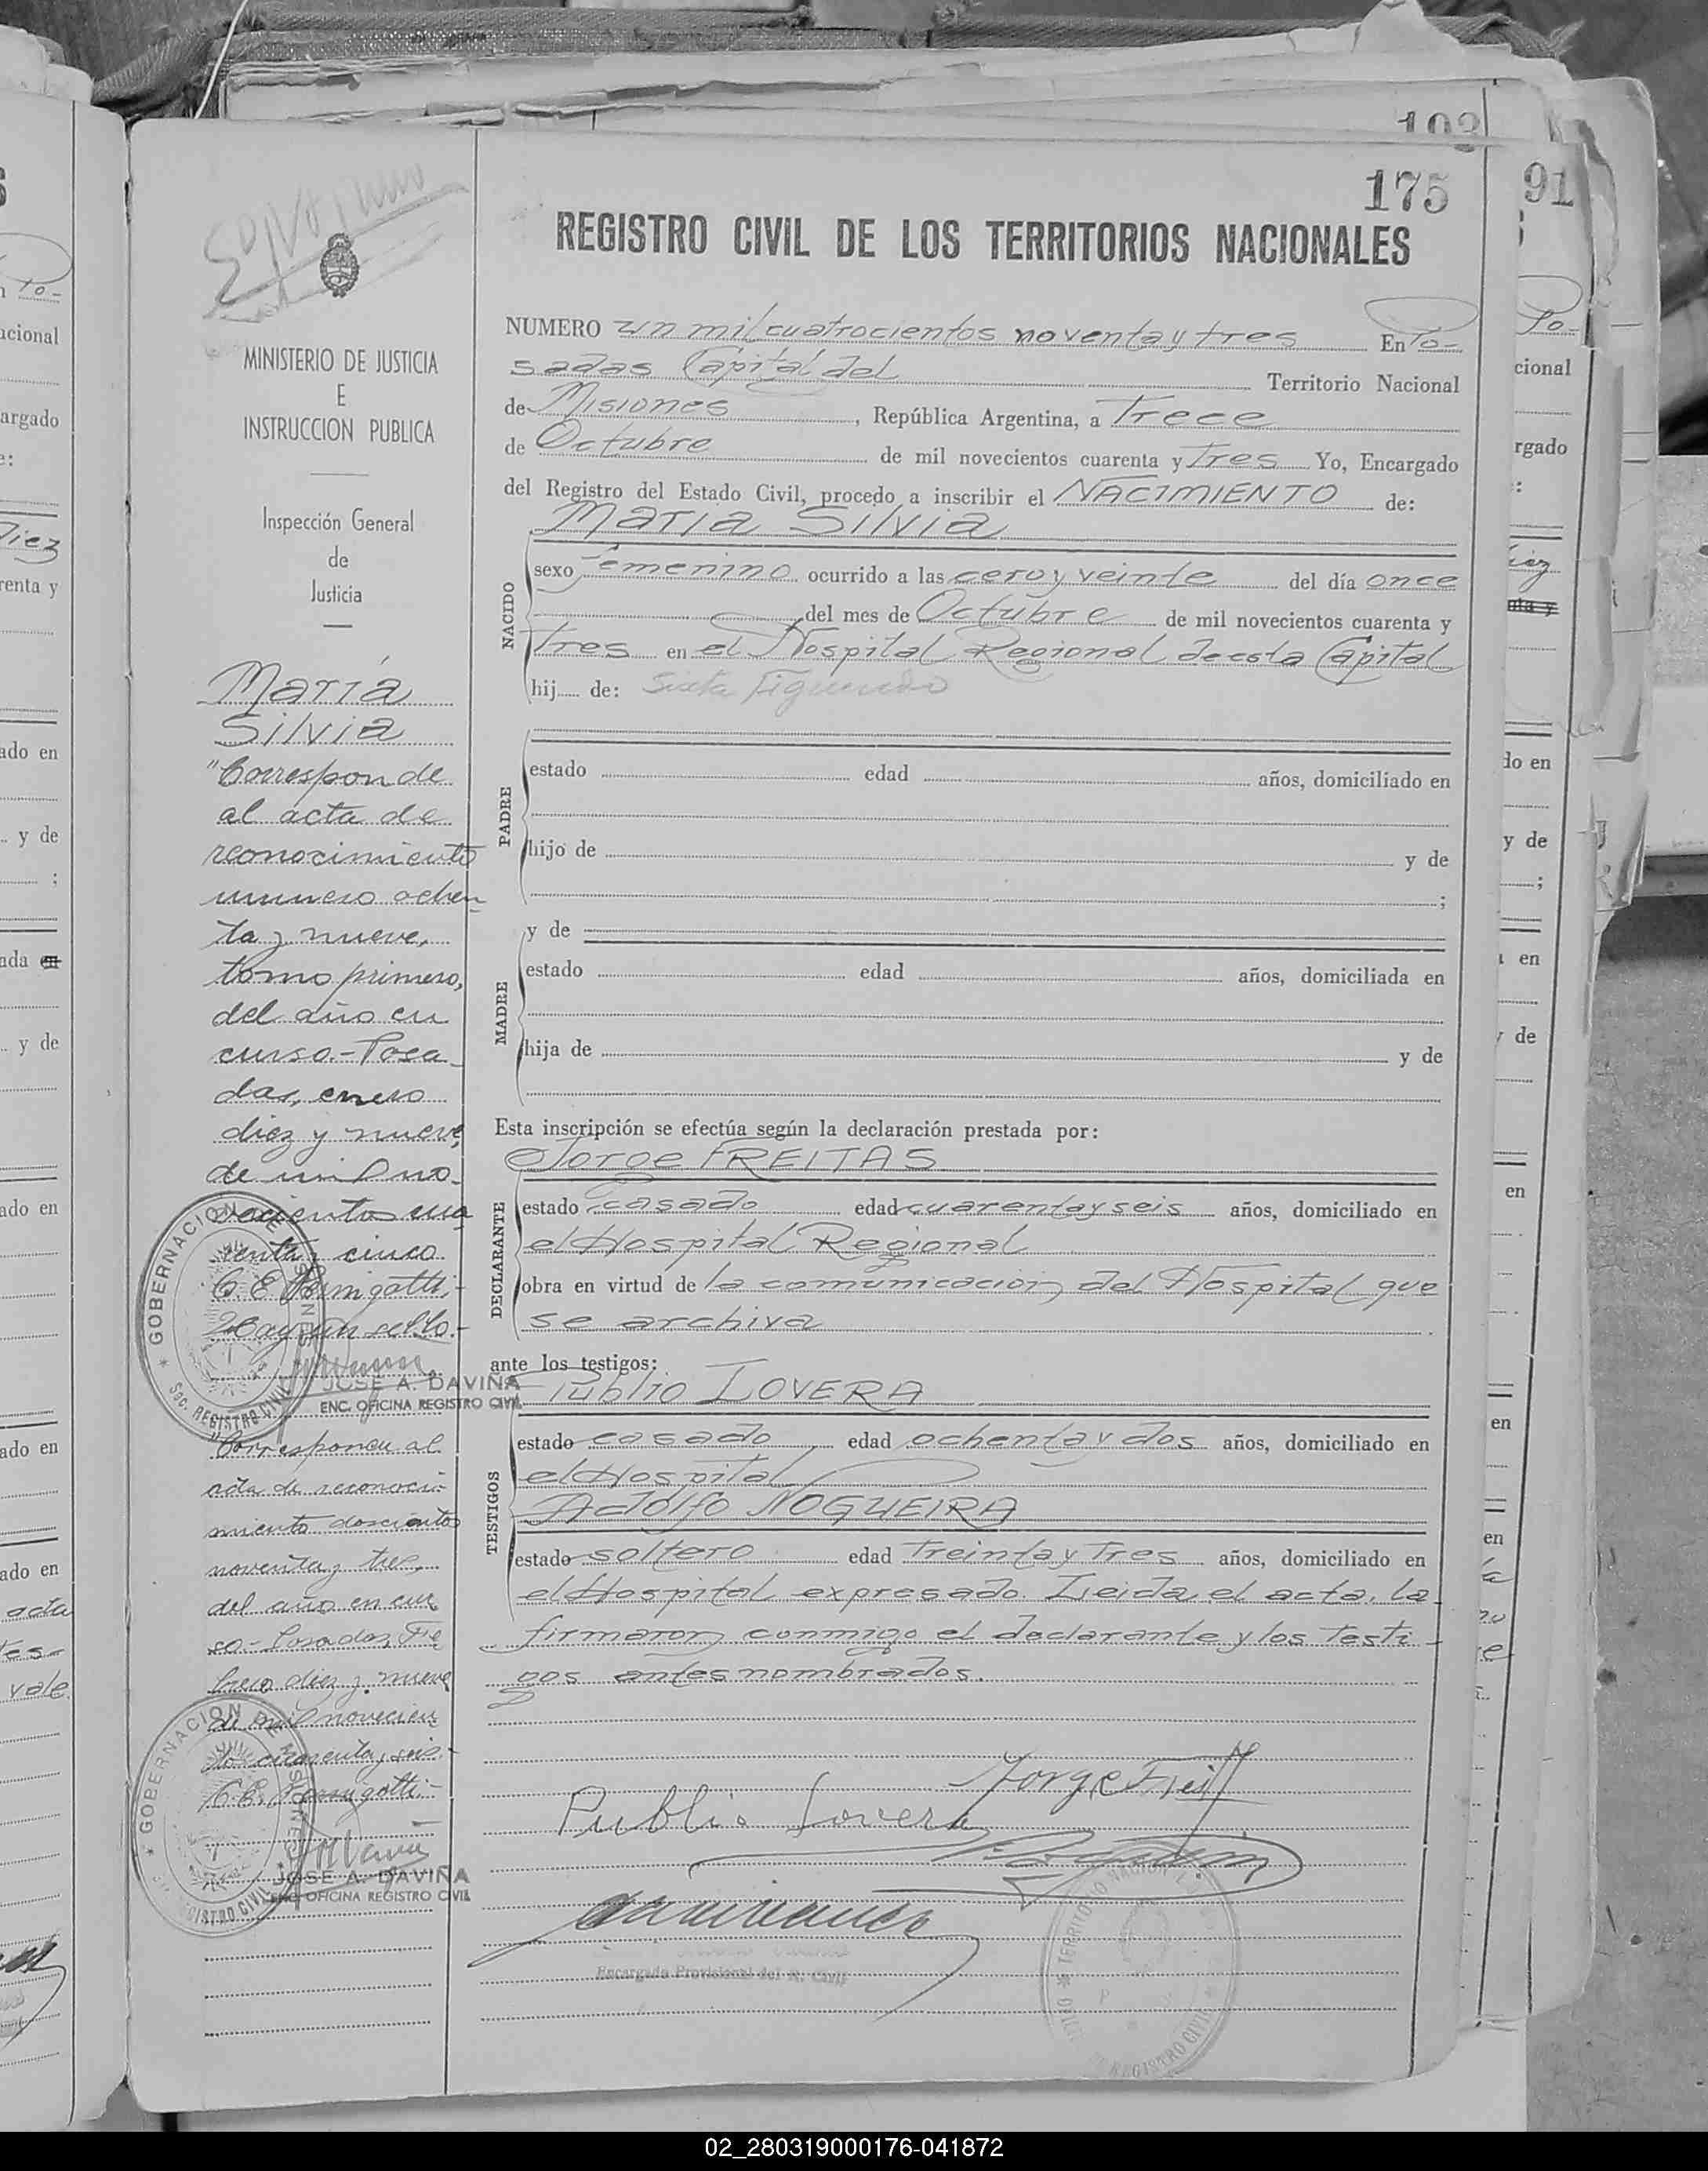 175
REGISTRO CIVIL DE LOS TERRITORIOS NACIONALES
NUMERO un mil cuatrocientos noventa y tres En Po-
sadas Capital del Territorio Nacional
de Misiones, República Argentina, a Trece
de Octubre de mil novecientos cuarenta y Tres Yo, Encargado
del Registro del Estado Civil, procedo a inscribir el NACIMIENTO de:
Maria Silvia
NACIDO
sexo Femenino ocurrido a las cero y veinte del día once
del mes de Octubre de mil novecientos cuarenta y
Tres en el Hospital Regional de esta Capital
hij de: Sixta Figueredo
PADRE
estado edad años, domiciliado en
hijo de y de
;
y de
MADRE
estado edad años, domiciliada en
hija de y de
Esta inscripción se efectúa según la declaración prestada por:
Jorge FREITAS
DECLARANTE
estado casado edad cuarenta y seis años, domiciliado en
el Hospital Regional
obra en virtud de la comunicacion del Hospital que
se archiva
ante los testigos:
Publio LOVERA
TESTIGOS
estado casado edad ochenta y dos años, domiciliado en
el Hospital
Adolfo NOGUEIRA
estado soltero edad Treinta y Tres años, domiciliado en
el Hospital expresado. Leida el acta, la
firmaron conmigo el declarante y los Testi-
gos antes nombrados.
Jorge Freit
Publio Lovera
Encargado Provisional del R. Civil
MINISTERIO DE JUSTICIA
E
INSTRUCCION PUBLICA
Inspección General
de
Justicia
María
Silvia
"Corresponde
al acta de
reconocimiento
numero ochen-
ta y nueve,
tomo primero,
del año en
curso.- Posa-
das, enero
diez y nueve
de mil no-
vecientos cua
renta y cinco
C. E.
Hay un sello.-
JOSE A. DAVIÑA
ENC. OFICINA REGISTRO CIVIL
GOBERNACION DE MISIONES
Sec. REGISTRO CIVIL
"Corresponde al
acta de reconoci-
miento doscientos
noventa y tres,
del año en cur
so.- Posadas, Fe
brero diez y nueve
de mil novecien
to cuarenta y seis.-
C. E.
JOSE A. DAVIÑA
ENC. OFICINA REGISTRO CIVIL
GOBERNACION DE MISIONES
REGISTRO CIVIL
193
91
02_280319000176-041872